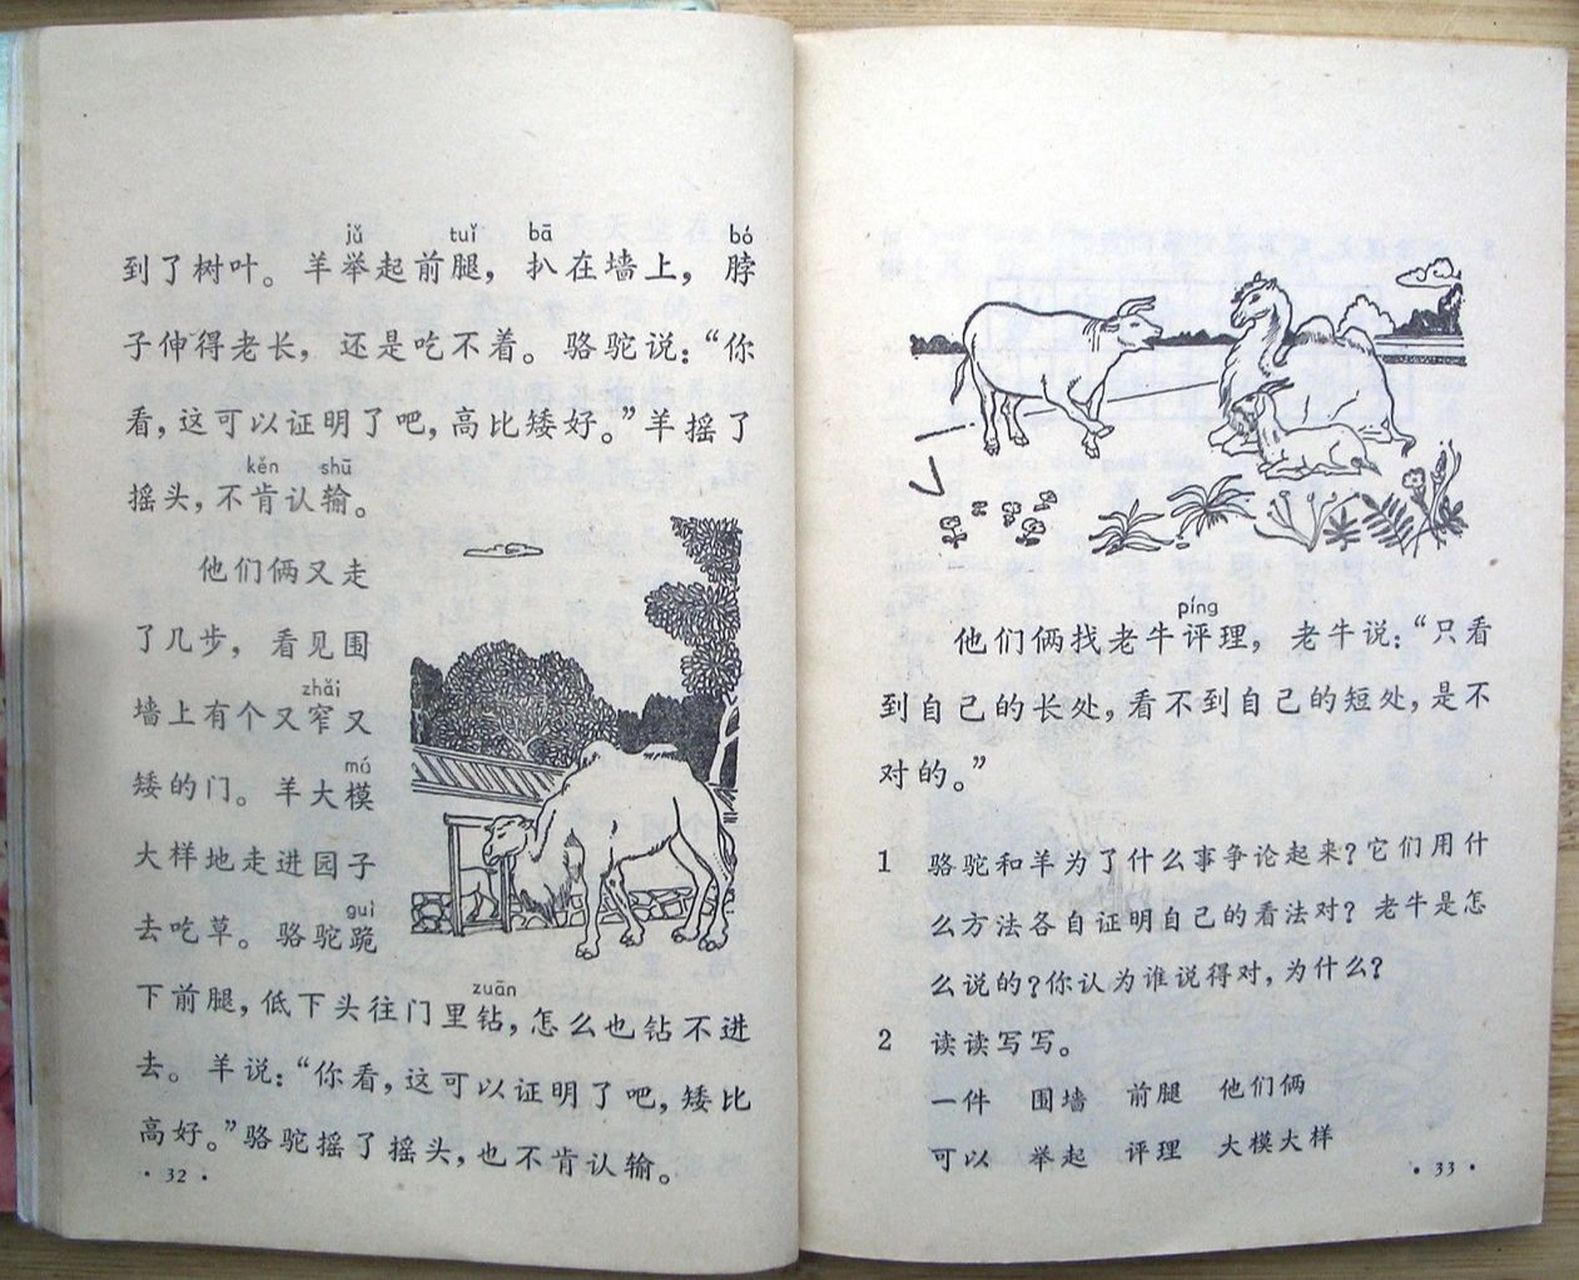 jǔ tuǐ bā bó
到了树叶。羊举起前腿，扒在墙上，脖
子伸得老长，还是吃不着。骆驼说：“你
看，这可以证明了吧，高比矮好。”羊摇了
kěn shū
摇头，不肯认输。
他们俩又走
了几步，看见围
zhǎi
墙上有个又窄又
mó
矮的门。羊大模
大样地走进园子
guì
去吃草。骆驼跪
zuān
下前腿，低下头往门里钻，怎么也钻不进
去。羊说：“你看，这可以证明了吧，矮比
高好。”骆驼摇了摇头，也不肯认输。
·32·
píng
他们俩找老牛评理，老牛说：“只看
到自己的长处，看不到自己的短处，是不
对的。”
1 骆驼和羊为了什么事争论起来？它们用什
么方法各自证明自己的看法对？老牛是怎
么说的？你认为谁说得对，为什么？
2 读读写写。
一件 围墙 前腿 他们俩
可以 举起 评理 大模大样
·33·